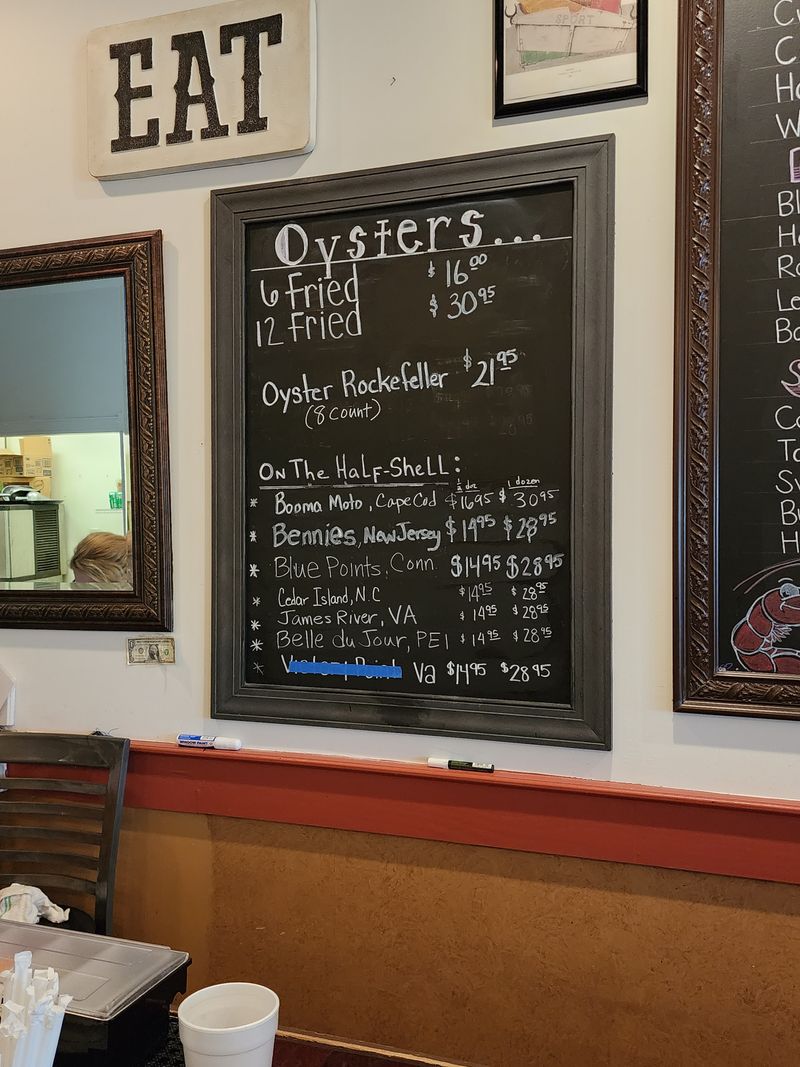 EAT
SPORT
Oysters...
6 Fried $16.00
12 Fried $30.95
Oyster Rockefeller $21.95
(8 count)
On The Half-Shell:
1/2 doz 1 dozen
* Booma Moto, Cape Cod $16.95 $30.95
* Bennies, New Jersey $14.95 $28.95
* Blue Points, Conn. $14.95 $28.95
* Cedar Island, N.C $14.95 $28.95
* James River, VA $14.95 $28.95
* Belle du Jour, PEI $14.95 $28.95
* Va $14.95 $28.95